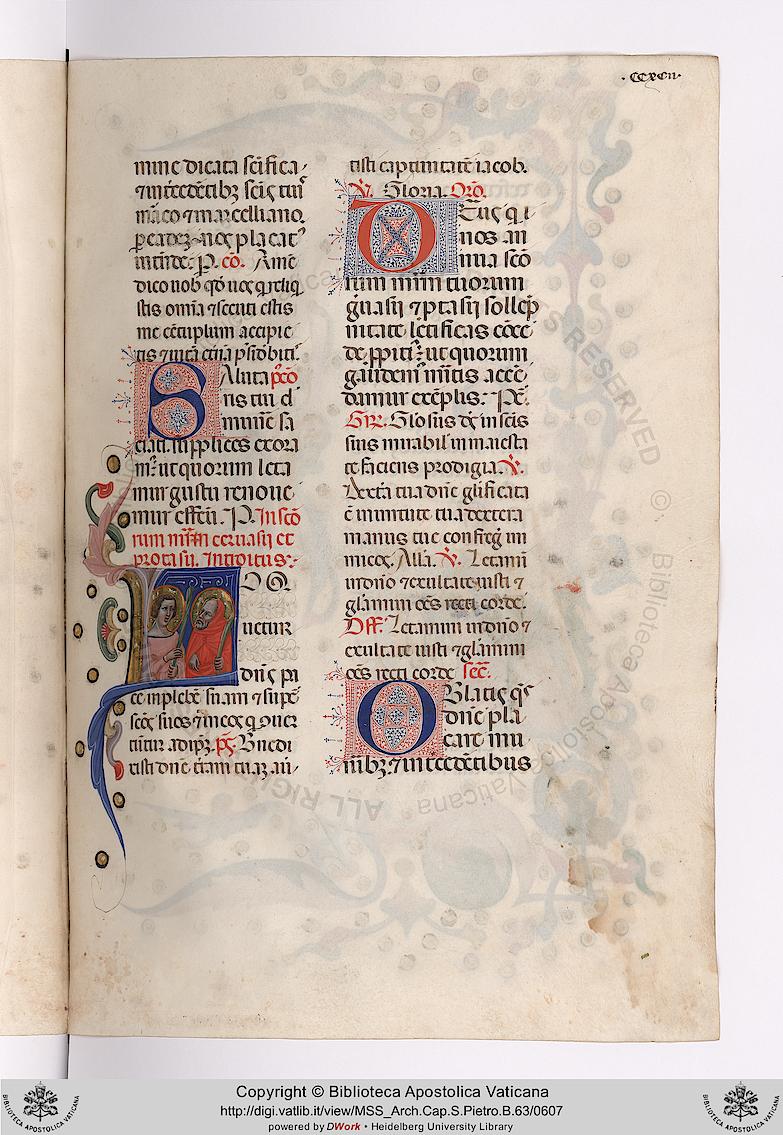 ·CCXCII·
mine dicata scīfica/
⁊ intcedētibȝ scīs tuis
marco ⁊ marcelliano
p eadeȝ nos placat᷒
intēde. P. cō. Amē
dico uob qđ uos q reliq
stis omīa ⁊ secuti estis
me cētuplum accipie
tis ⁊ uitā etnā possidebiti᷒.
Saluta p᷒ cō
ris tui d
omine sa
ciati. supplices exora
m᷒ ut quorum leta
mur gustu renoue
mur effcū. P. In scō
rum mr̄m geruasii et
protasii. Introitus:
LOQ
uetur
dn̄s pa
cē in plebē suam ⁊ supē
scōs suos ⁊ in eos q conuer
tūtur ad ipm. ps̄. Bn̄edi
xisti dn̄e terram tuaȝ au̅
tisti captiuitatē iacob.
V. Gloria. Orō.
Deus q i
nos an
nua scō
rum mr̄m tuorum
geruasii ⁊ ptasii sollēp
nitate letificas cōce
de ppiti᷒ ut quorum
gaudem᷒ mitis accē
damur exēplis: Pe.
Gr. Glosus de in scīs
suis mirabil' in maiesta
te faciens prodigia. V.
Dextā tua dn̄e glificata
ē in uirtute tua dextera
manus tue confregit ini
micos. Alla. V. Letam̄
in dn̄o ⁊ exultate iusti ⁊
glamini oēs recti corde.
Off. Letamini in dn̄o ⁊
exultate iusti ⁊ glamini
oēs recti corde. Sec̄.
Oblatis qs̄
dn̄e pla
care mu
nībȝ. ⁊ intcedētibus
Copyright © Biblioteca Apostolica Vaticana
http://digi.vatlib.it/view/MSS_Arch.Cap.S.Pietro.B.63/0607
powered by DWork • Heidelberg University Library